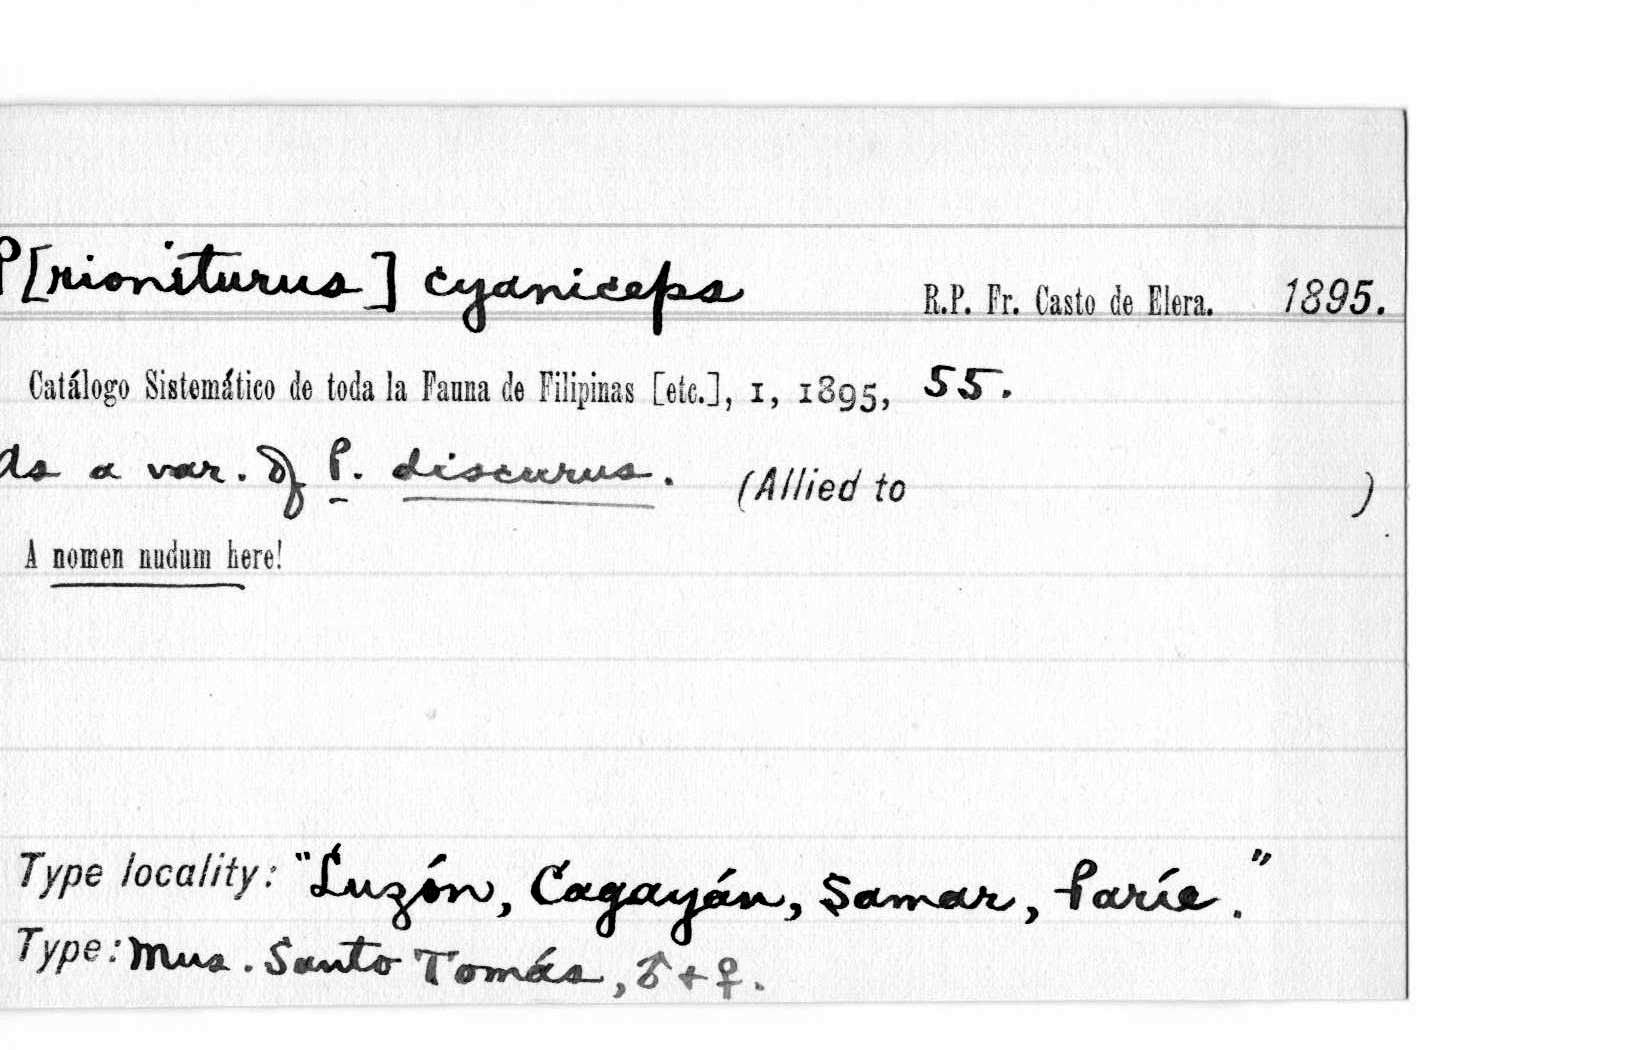 P[rioniturus] cyaniceps R.P. Fr. Casto de Elera. 1895.
Catálogo Sistemático de toda la Fauna de Filipinas [etc.], I, 1895, 55.
As a var. of P. discurus. (Allied to )
A nomen nudum here!
Type locality: "Luzón, Cagayán, Samar, Paríc."
Type: Mus. Santo Tomás, ♂ + ♀.